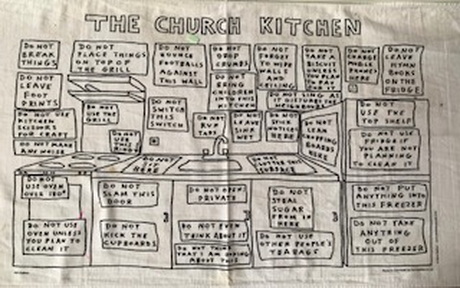 THE CHURCH KITCHEN
DO NOT
BREAK
THINGS
DO NOT
PLACE THINGS
ON TOP OF
THE GRILL
DO NOT
BOUNCE
FOOTBALLS
AGAINST
THIS WALL
DO NOT
DROP
CRUMBS
DO NOT
FORGET
TO WIPE
WALLS
CEILING
DO NOT
TAKE A
BISCUIT
UNLESS
DO NOT
CHARGE
PHONES
DO NOT
LEAVE
HYMN
BOOKS
ON THE
FRIDGE
DO NOT
LEAVE
FOOT
PRINTS
DO NOT
BRING
CHILDREN
INTO THIS
KITCHEN
DO NOT
USE THE
GRILL
DO NOT
SWITCH
THIS
SWITCH
DO NOT
USE
SCISSORS
FOR CRAFT
DO NOT
TAP
DO NOT
SINK
WET
DO NOT
NOTICES
HERE
DO NOT
LEAN
CHOPPING
BOARDS
HERE
DO NOT
USE THE
TOP SHELF
DO NOT USE
FRIDGE IF
YOU ARE NOT
PLANNING
TO CLEAN IT
DO NOT MAKE
ANY
DO NOT
HERE
DO NOT
SURFACE
DO NOT
USE OVEN
OVER 180°
DO NOT
SLAM THIS
DOOR
DO NOT OPEN:
PRIVATE
DO NOT
STEAL
SUGAR
FROM IN
HERE
DO NOT PUT
ANYTHING INTO
THIS FREEZER
DO NOT USE
OVEN UNLESS
YOU PLAN TO
CLEAN IT
DO NOT
KICK THE
CUPBOARDS
DO NOT EVEN
THINK ABOUT IT
DO NOT THINK
THAT I AM JOKING
ABOUT THIS
DO NOT USE
OTHER PEOPLE'S
TEABAGS
DO NOT TAKE
ANYTHING
OUT OF
THIS FREEZER